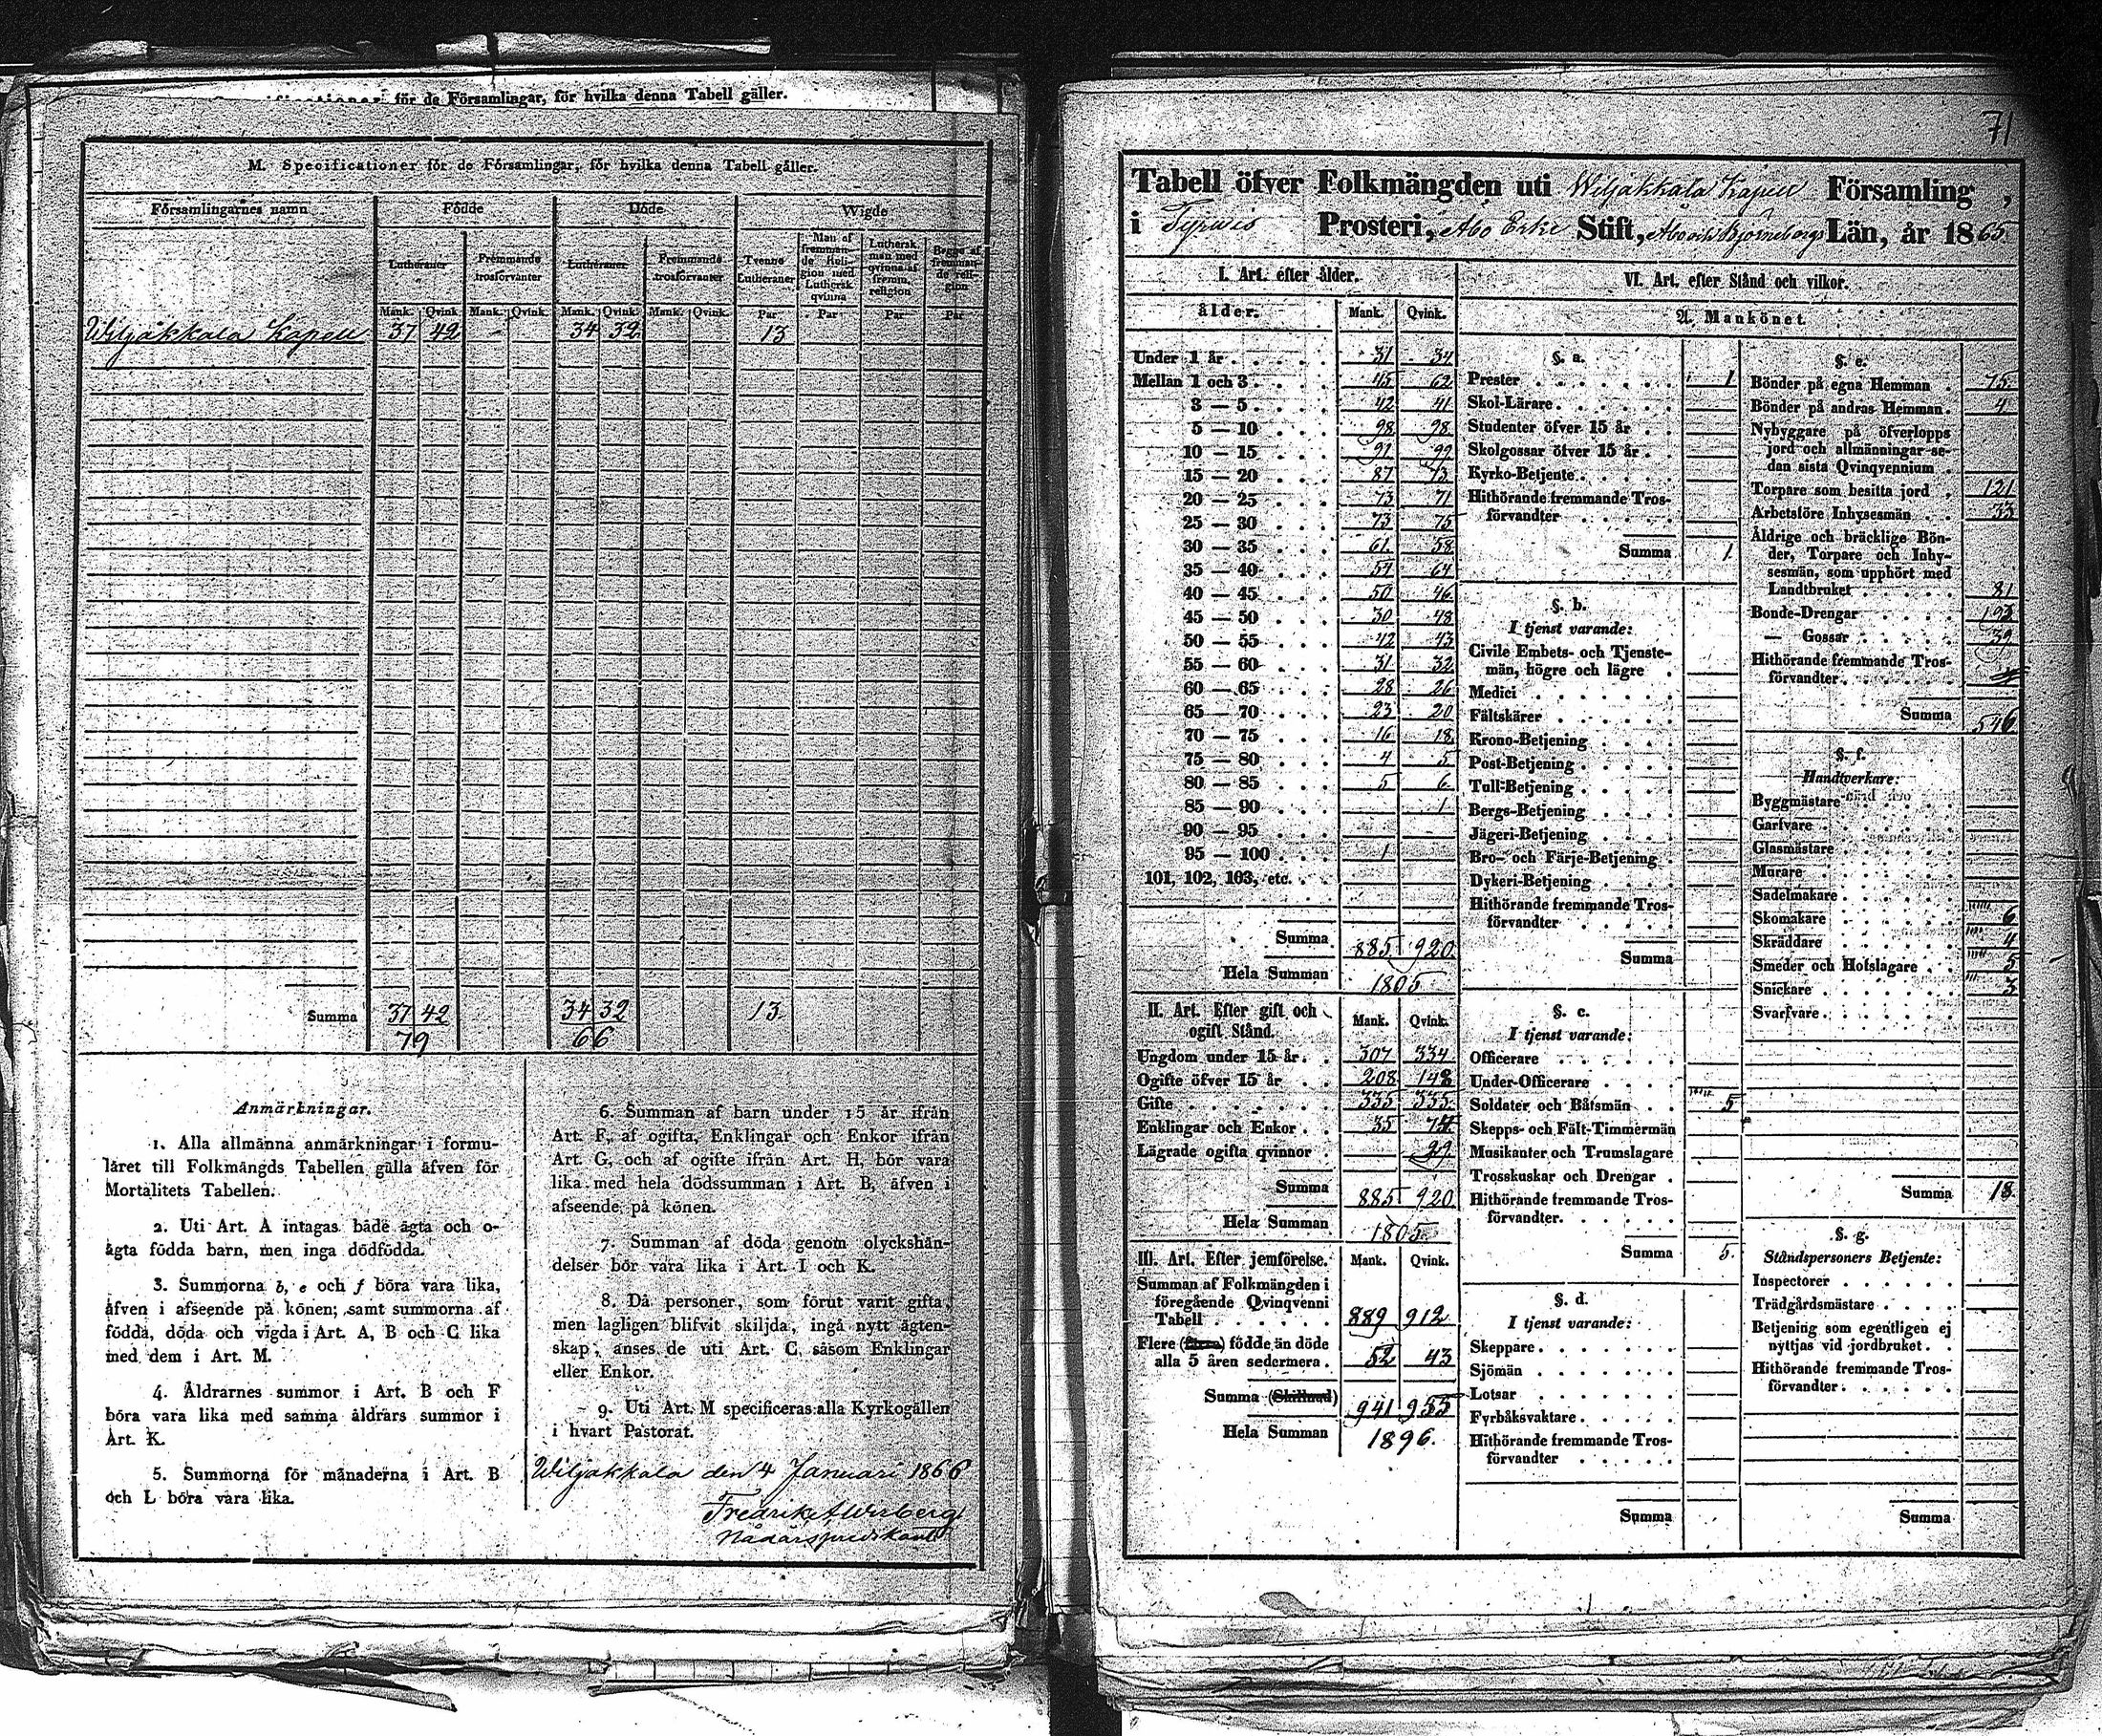 för de Församlingar, för hvilka denna Tabell gäller.
M. Specificationer för de Församlingar, för hvilka denna Tabell gäller.
Församlingarnes namn
Födde
Döde
Wigde
Lutheraner
Fremmande trosförvanter
Lutheraner
Fremmande trosförvanter
Tvenne Lutheraner
Man af fremmande Religion med Luthersk qvinna
Luthersk man med qvinna af fremm. religion
Begge af fremmande religion
Mank. Qvink. Mank. Qvink. Mank. Qvink. Mank. Qvink. Par Par Par Par
Wiljakkala Kapell 37 42 - 34 32 13
Summa 37 42 34 32 13
79 66
Anmärkningar.
1. Alla allmänna anmärkningar i formu-
läret till Folkmängds Tabellen gälla äfven för
Mortalitets Tabellen.
2. Uti Art. A intagas både ägta och o-
ägta födda barn, men inga dödfödda.
3. Summorna b, e och f böra vara lika,
äfven i afseende på könen; samt summorna af
födda, döda och vigda i Art. A, B och C lika
med dem i Art. M.
4. Åldrarnes summor i Art. B och F
böra vara lika med samma åldrars summor i
Art. K.
5. Summorna för månaderna i Art. B
och L böra vara lika.
6. Summan af barn under 15 år ifrån
Art. F, af ogifta, Enklingar och Enkor ifrån
Art. G, och af ogifte ifrån Art. H, bör vara
lika med hela dödssumman i Art. B, äfven i
afseende på könen.
7. Summan af döda genom olyckshän-
delser bör vara lika i Art. I och K.
8. Då personer, som förut varit gifta,
men lagligen blifvit skiljda, ingå nytt ägten-
skap, anses de uti Art. C såsom Enklingar
eller Enkor.
9. Uti Art. M specificeras alla Kyrkogällen
i hvart Pastorat.
Wiljakkala den 4 Januari 1866
Fredrik
71
Tabell öfver Folkmängden uti Wiljakkala Kapell Församling,
i Tyrwis Prosteri, Åbo Erke Stift, Åbo och Björneborgs Län, år 1865
I. Art. efter ålder.
ålder. Mank. Qvink.
Under 1 år 31 34
Mellan 1 och 3 45 62
3 — 5 42 41
5 — 10 98 98
10 — 15 91 99
15 — 20 87 73
20 — 25 73 71
25 — 30 73 75
30 — 35 61 58
35 — 40 54 64
40 — 45 50 46
45 — 50 30 48
50 — 55 42 43
55 — 60 31 32
60 — 65 28 26
65 — 70 23 20
70 — 75 16 18
75 — 80 4 5
80 — 85 5 6
85 — 90 1
90 — 95
95 — 100 1
101, 102, 103, etc.
Summa 885 920
Hela Summan 1805
II. Art. Efter gift och
ogift Stånd. Mank. Qvink.
Ungdom under 15 år 307 334
Ogifte öfver 15 år 208 148
Gifte 335 335
Enklingar och Enkor 35
Lägrade ogifta qvinnor 29
Summa 885 920
Hela Summan 1805
III. Art. Efter jemförelse. Mank. Qvink.
Summan af Folkmängden i
föregående Qvinqvenni
Tabell 889 912
Flere (färre) födde än döde
alla 5 åren sedermera 52 43
Summa (Skillnad) 941 955
Hela Summan 1896.
VI. Art. efter Stånd och vilkor.
A. Mankönet.
§. a.
Prester 1
Skol-Lärare
Studenter öfver 15 år
Skolgossar öfver 15 år
Kyrko-Betjente
Hithörande fremmande Tros-
förvandter
Summa 1
§. b.
I tjenst varande:
Civile Embets- och Tjenste-
män, högre och lägre
Medici
Fältskärer
Krono-Betjening
Post-Betjening
Tull-Betjening
Bergs-Betjening
Jägeri-Betjening
Bro- och Färje-Betjening
Dykeri-Betjening
Hithörande fremmande Tros-
förvandter
Summa
§. c.
I tjenst varande:
Officerare
Under-Officerare
Soldater och Båtsmän 5
Skepps- och Fält-Timmermän
Musikanter och Trumslagare
Trosskuskar och Drengar
Hithörande fremmande Tros-
förvandter.
Summa 5.
§. d.
I tjenst varande:
Skeppare
Sjömän
Lotsar
Fyrbåksvaktare
Hithörande fremmande Tros-
förvandter
Summa
§. e.
Bönder på egna Hemman 75
Bönder på andras Hemman 4
Nybyggare på öfverlopps
jord och allmänningar se-
dan sista Qvinqvennium
Torpare som besitta jord 121
Arbetsföre Inhysesmän 33
Åldrige och bräcklige Bön-
der, Torpare och Inhy-
sesmän, som upphört med
Landtbruket 81
Bonde-Drengar 193
— Gossar 39
Hithörande fremmande Tros-
förvandter
Summa 546
§. f.
Handtverkare:
Byggmästare
Garfvare
Glasmästare
Murare
Sadelmakare
Skomakare 6
Skräddare 4
Smeder och Hofslagare 5
Snickare 3
Svarfvare
Summa 18
§. g.
Ståndspersoners Betjente:
Inspectorer
Trädgårdsmästare
Betjening som egentligen ej
nyttjas vid jordbruket
Hithörande fremmande Tros-
förvandter
Summa